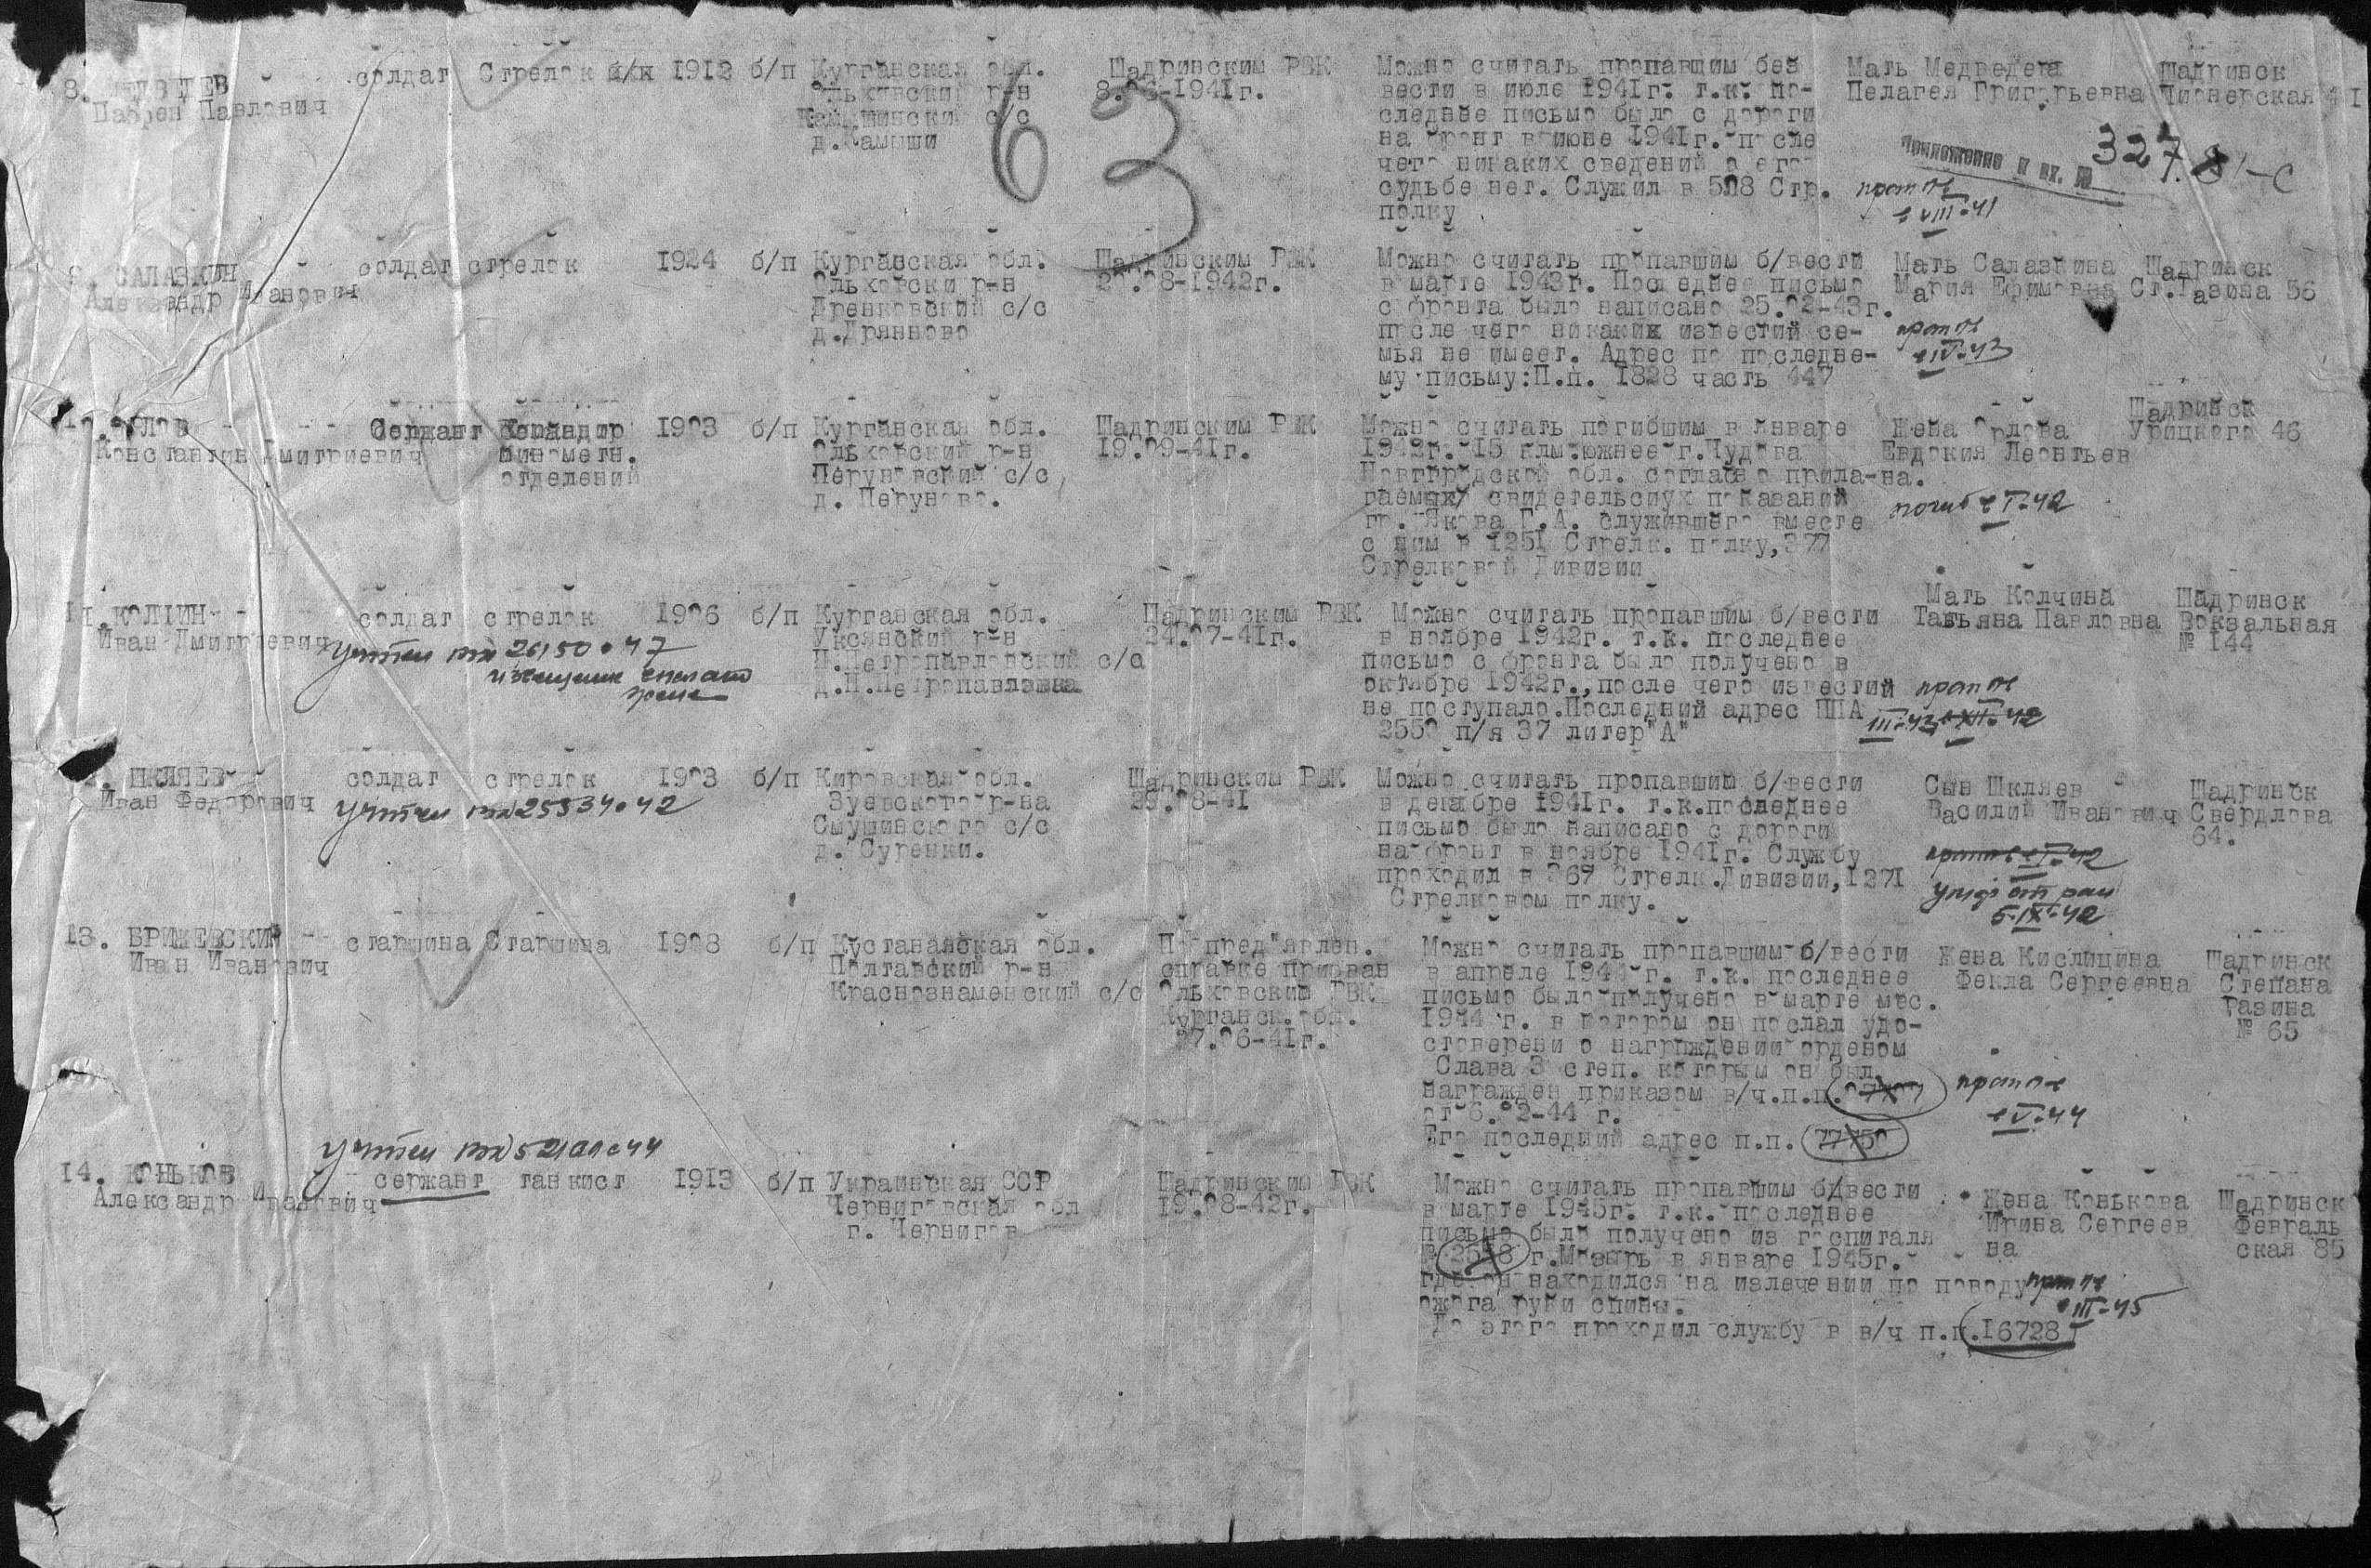 8. МЕДВЕДЕВ солдат Стрелок к/к 1912 б/п Курганская обл. Шадринским РВК Можно считать пропавшим без Мать Медведева Шадринск
Павлович Ольховский р-н 8.06-1941г. вести в июле 1941г. т.к. по- Пелагея Григорьевна Пионерская 41
Камышинский с/с следнее письмо было с дороги
д.Камыши на фронт в июне 1941г. после
чего никаких сведений о его
судьбе нет. Служил в 508 Стр.
полку
63
Приложение к вх. № 327.8/-с
проп б/в
в VIII-41
9. САЛАЗКИН солдат стрелок 1924 б/п Курганская обл. Шадринским РВК Можно считать пропавшим б/вести Мать Салазкина Шадринск
Александр Иванович Ольховски р-н 20.08-1942г. в марте 1943г. Последнее письмо Мария Ефимовна Ст.Разина 56
с/с с фронта было написано 25.02-43г.
д.Дрянново после чего никаких известий се-
мья не имеет. Адрес по последне-
му письму:П.п. 1828 часть 447
проп б/в
в IV-43
10 ОРЛОВ Сержант Командир 1903 б/п Курганская обл. Шадринским РВК Можно считать погибшим в январе Жена Орлова Шадринск
Константин Дмитриевич минометн. Ольховский р-н 19.09-41г. 1942г. 15 клм.южнее г.Чудова Евдокия Леонтьев Урицкого 46
отделений Перуновский с/с Новгородской обл. согласно прила- на.
д. Перуново. гаемых свидетельских показаний
гр. Якова Г.А. служившего вместе
с ним в 1251 Стрелк. полку,377
Стрелковой Дивизии
погиб в I-42
11.КОЛЧИН солдат стрелок 1906 б/п Курганская обл. Шадринским РВК Можно считать пропавшим б/вести Мать Колчина Шадринск
Иван Дмитриевич Уксянский р-н 24.07-41г. в ноябре 1942г. т.к. последнее Татьяна Павловна Вокзальная
Н.Петропавловский с/с письмо с фронта было получено в № 144
д.Н.Петропавловка октябре 1942г.,после чего известий
не поступало.Последний адрес ППА
2550 п/я 37 литер"А"
Учтен вх 26150-47
извещение
жене
проп б/в
III-43 в XII-42
ШКЛЯЕВ солдат стрелок 1903 б/п Кировская обл. Шадринским РВК Можно считать пропавшим б/вести Сын Шкляев Шадринск
Иван Федорович Зуевского р-на 29.08-41 в декабре 1941г. т.к.последнее Василий Иванович Свердлова
с/с письмо было написано с дороги 64.
д. Суренки. на фронт в ноябре 1941г. Службу
проходил в 367 Стрелк.Дивизии,1271
Стрелковом полку.
Учтен вх 25534-42
проп б/в в I-42
умер от ран
5-IX-42
13. БРИЖЕВСКИЙ старшина Старшина 1908 б/п Кустанайская обл. По пред"явлен. Можно считать пропавшим б/вести Жена Кислицина Шадринск
Иван Иванович Полтавский р-н справке призван в апреле 1944 г. т.к. последнее Фекла Сергеевна Степана
Краснознаменский с/с Ольховским РВК письмо было получено в марте мес. Разина
Курганск.обл. 1944 г. в котором он послал удо- № 65
27.06-41г. стоверени о награждении орденом
Слава 3 степ. которым он был
награжден приказом в/ч.п.п.
от 6.02-44 г.
Его последний адрес п.п. 77750
проп б/в
в V-44
14. КОНЬКОВ сержант танкист 1913 б/п Украинская ССР Шадринским РВК Можно считать пропавшим б/вести Жена Конькова Шадринск
Александр Иванович Черниговская обл 19.08-42г. в марте 1945г. т.к. последнее Ирина Сергеев Февраль
г. Чернигов письмо было получено из госпиталя на ская 85
г.Мозырь в январе 1945г.
где он находился на излечении по поводу
ожога руки спины.
До этого проходил службу в в/ч п.п.16728
проп б/в
в III-45